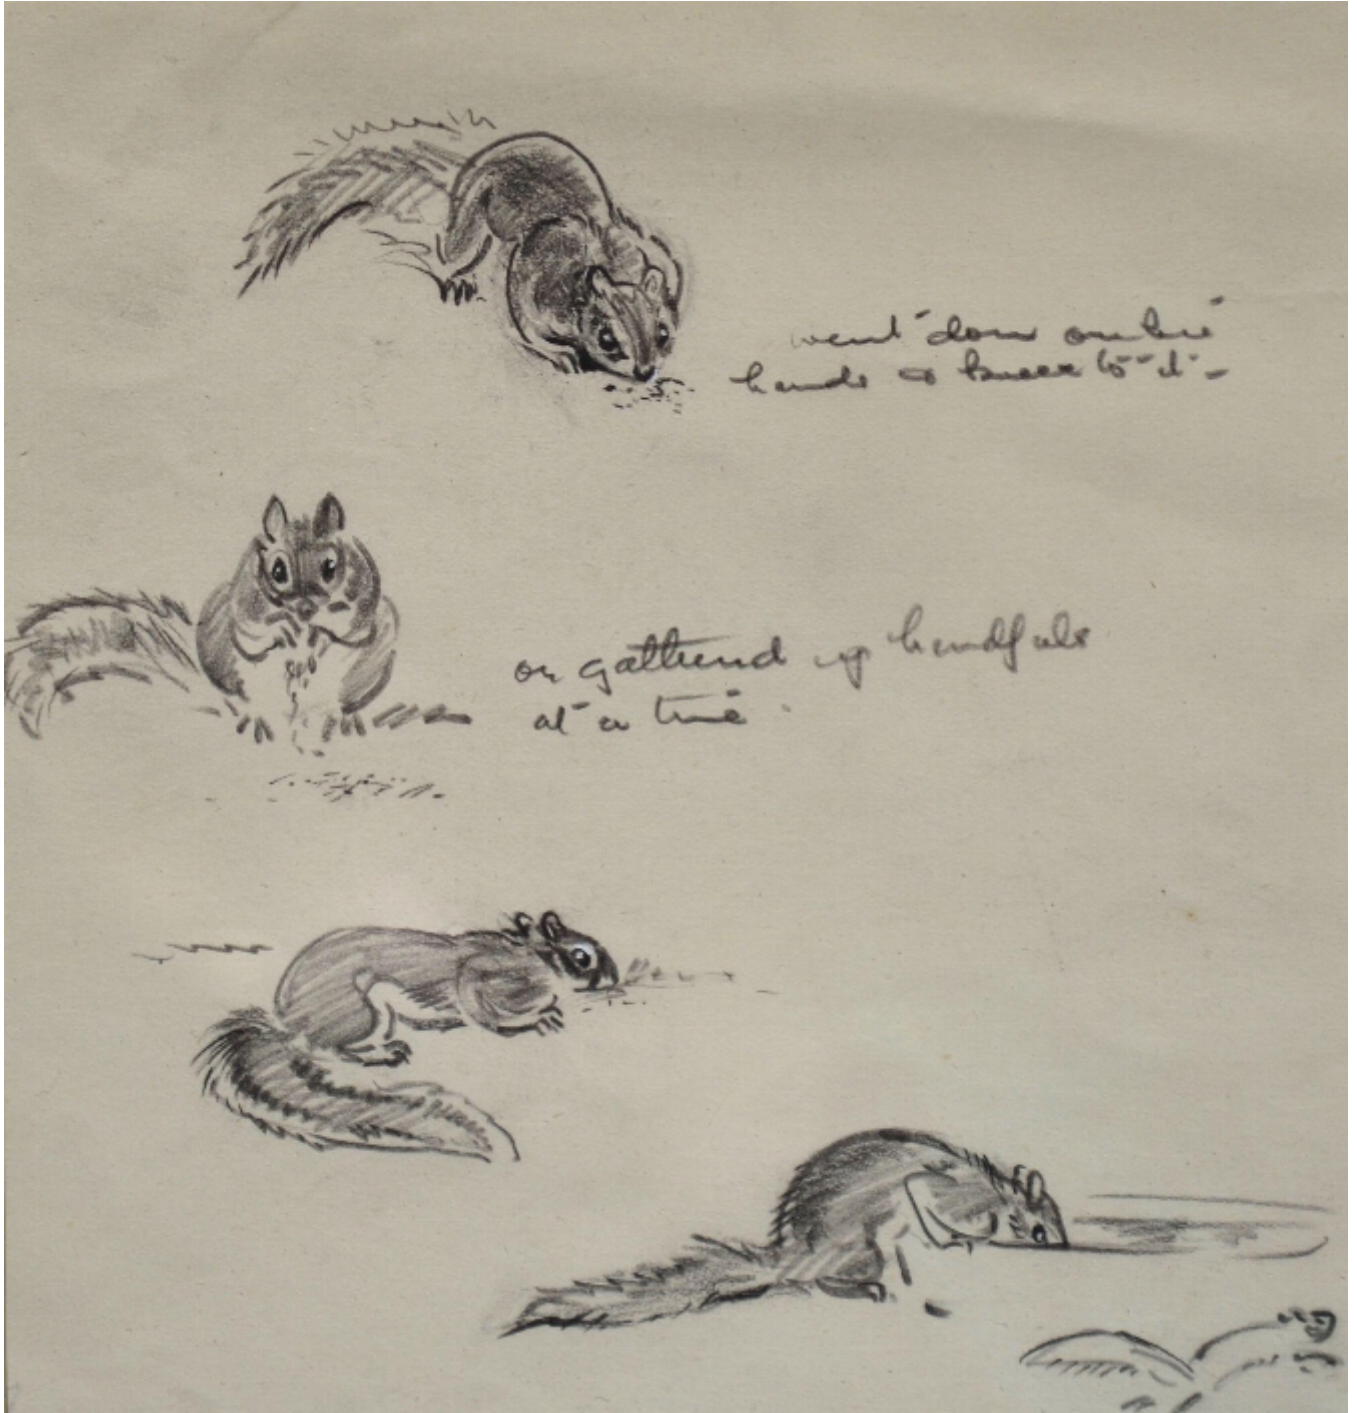 went down on his
hands & knees to it -
or gathered up handfuls
at a time.